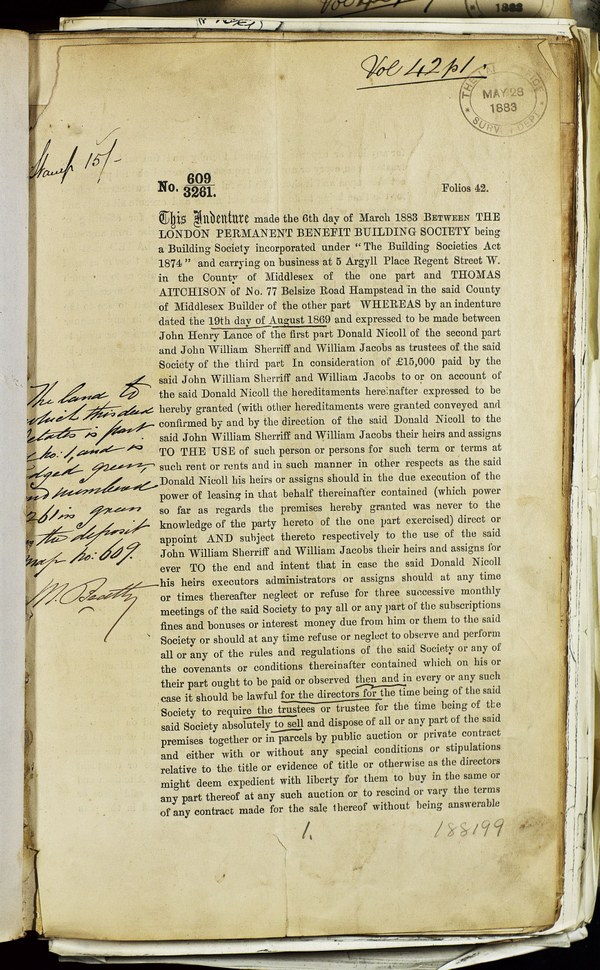 1883
Vol 42 p 1.
MAY 28
1883
Stamp 15/-
No. 609
3261.
Folios 42.
This Indenture made the 6th day of March 1883 BETWEEN THE
LONDON PERMANENT BENEFIT BUILDING SOCIETY being
a Building Society incorporated under "The Building Societies Act
1874" and carrying on business at 5 Argyll Place Regent Street W.
in the County of Middlesex of the one part and THOMAS
AITCHISON of No. 77 Belsize Road Hampstead in the said County
of Middlesex Builder of the other part WHEREAS by an indenture
dated the 19th day of August 1869 and expressed to be made between
John Henry Lance of the first part Donald Nicoll of the second part
and John William Sherriff and William Jacobs as trustees of the said
Society of the third part In consideration of £15,000 paid by the
said John William Sherriff and William Jacobs to or on account of
the said Donald Nicoll the hereditaments hereinafter expressed to be
hereby granted (with other hereditaments were granted conveyed and
confirmed by and by the direction of the said Donald Nicoll to the
said John William Sherriff and William Jacobs their heirs and assigns
TO THE USE of such person or persons for such term or terms at
such rent or rents and in such manner in other respects as the said
Donald Nicoll his heirs or assigns should in the due execution of the
power of leasing in that behalf thereinafter contained (which power
so far as regards the premises hereby granted was never to the
knowledge of the party hereto of the one part exercised) direct or
appoint AND subject thereto respectively to the use of the said
John William Sherriff and William Jacobs their heirs and assigns for
ever TO the end and intent that in case the said Donald Nicoll
his heirs executors administrators or assigns should at any time
or times thereafter neglect or refuse for three successive monthly
meetings of the said Society to pay all or any part of the subscriptions
fines and bonuses or interest money due from him or them to the said
Society or should at any time refuse or neglect to observe and perform
all or any of the rules and regulations of the said Society or any of
the covenants or conditions thereinafter contained which on his or
their part ought to be paid or observed then and in every or any such
case it should be lawful for the directors for the time being of the said
Society to require the trustees or trustee for the time being of the
said Society absolutely to sell and dispose of all or any part of the said
premises together or in parcels by public auction or private contract
and either with or without any special conditions or stipulations
relative to the title or evidence of title or otherwise as the directors
might deem expedient with liberty for them to buy in the same or
any part thereof at any such auction or to rescind or vary the terms
of any contract made for the sale thereof without being answerable
The land to
which this deed
relates is part
no: 1, and is
edged green,
and numbered
261 in green
the deposit
map no: 609.
1.
188199